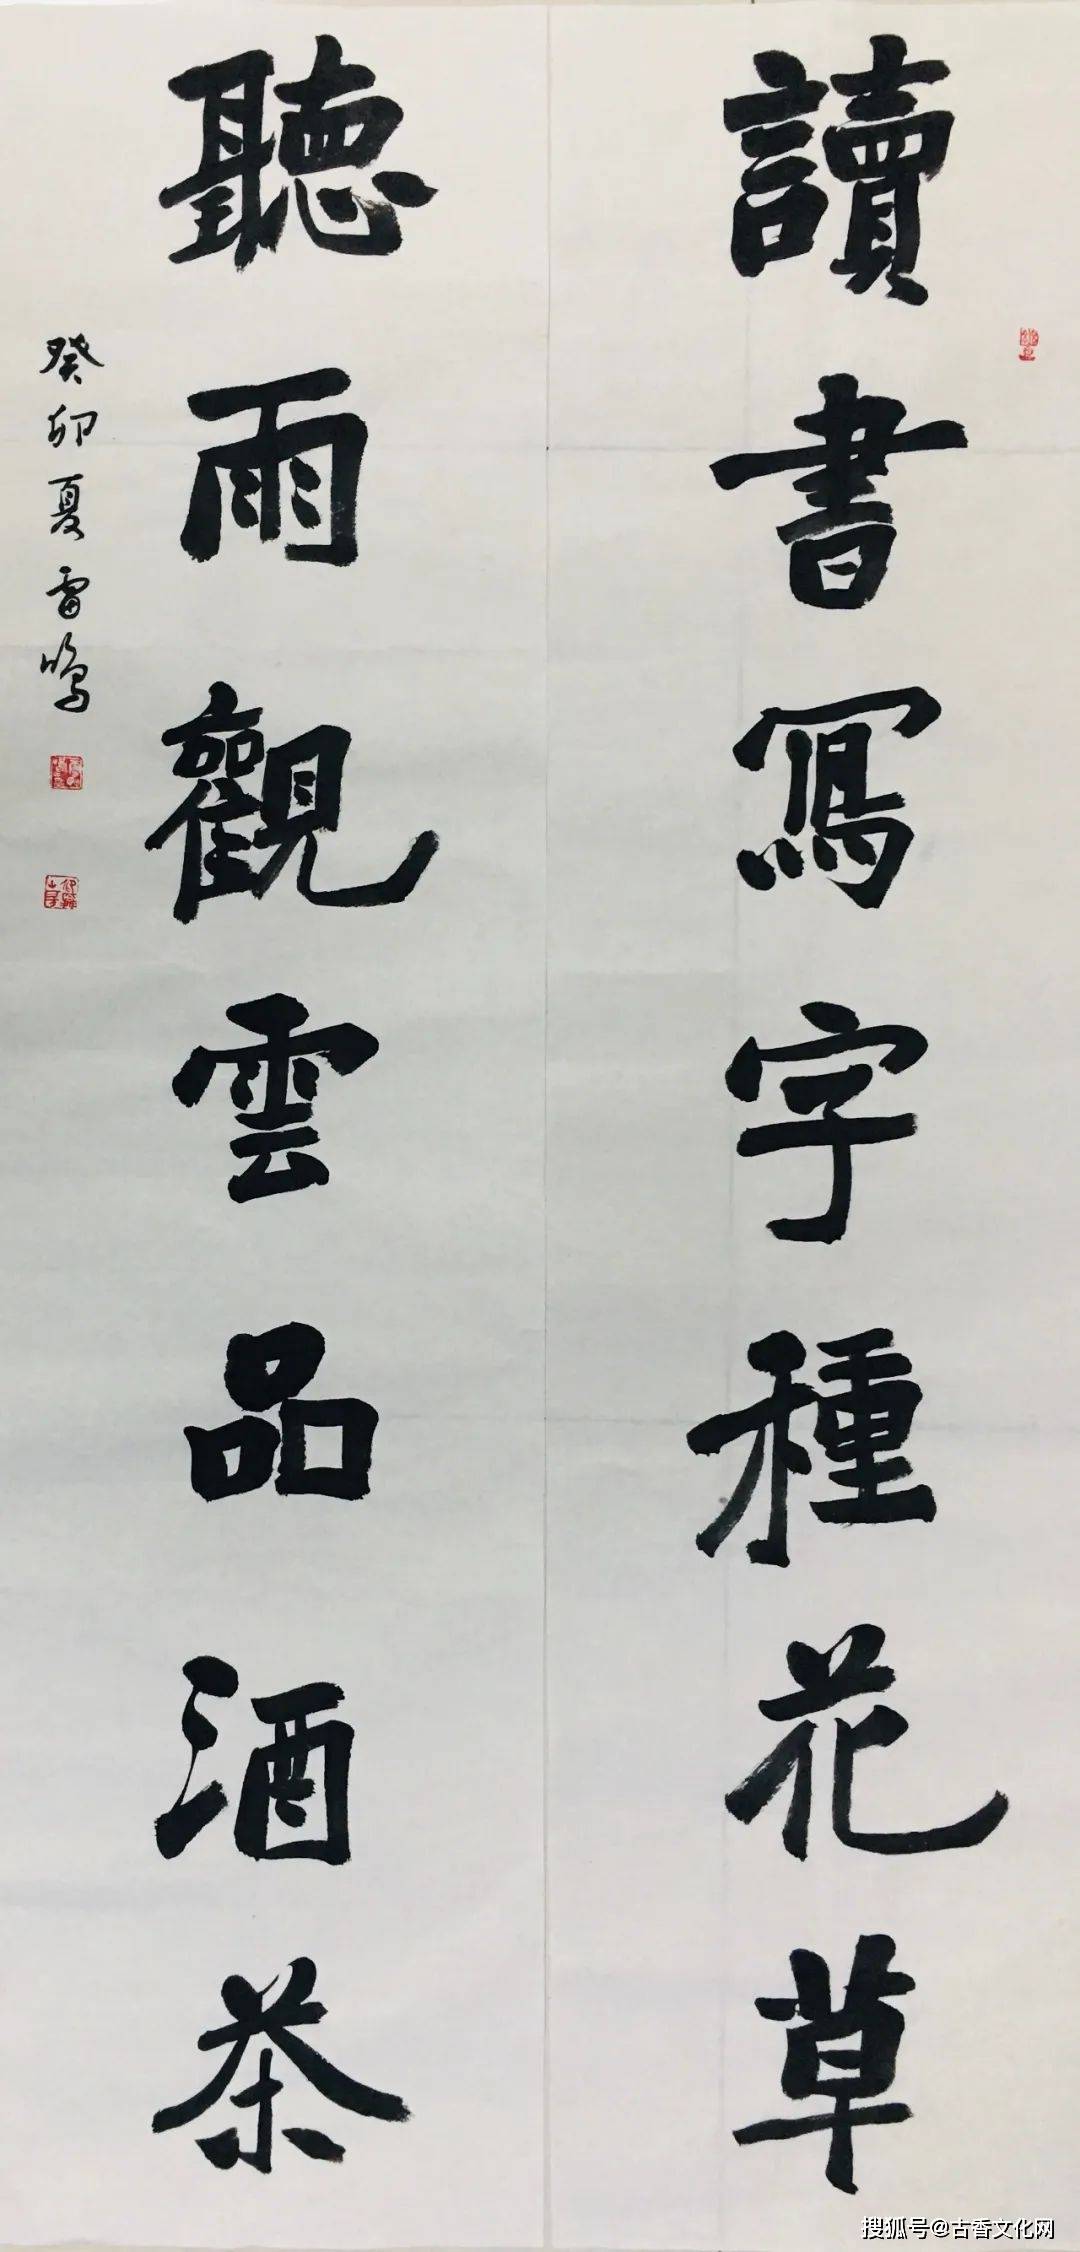 讀書寫字種花草
聽雨觀雲品酒茶
癸卯夏雷鳴
搜狐号@古香文化网